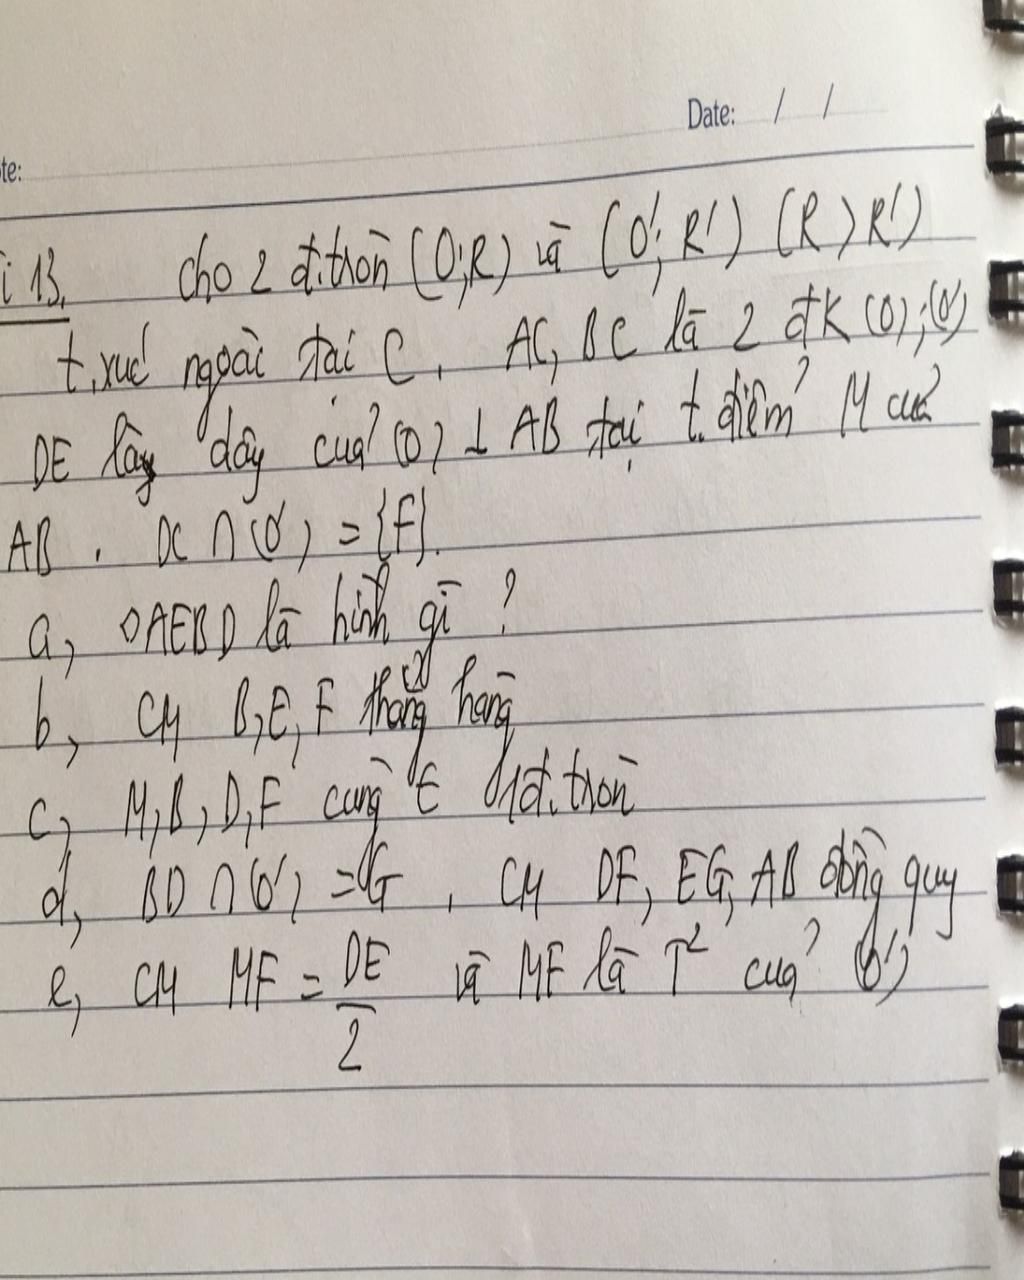 Date: / /
te:
i 13, cho 2 đ.tròn (O;R) và (O'; R') (R > R')
t.xúc ngoài tại C. AC, BC là 2 đK (O); (O')
DE là dây của (O) ⊥ AB tại t.điểm M của
AB . DC ∩ (O') = {F}.
a, ◊AEBD là hình gì ?
b, CM B, E, F thẳng hàng
c, M, B, D, F cùng ∈ 1 đ.tròn
d, BD ∩ (O') = G . CM DF, EG, AB đồng quy
e, CM MF = DE/2 và MF là T² của (O')